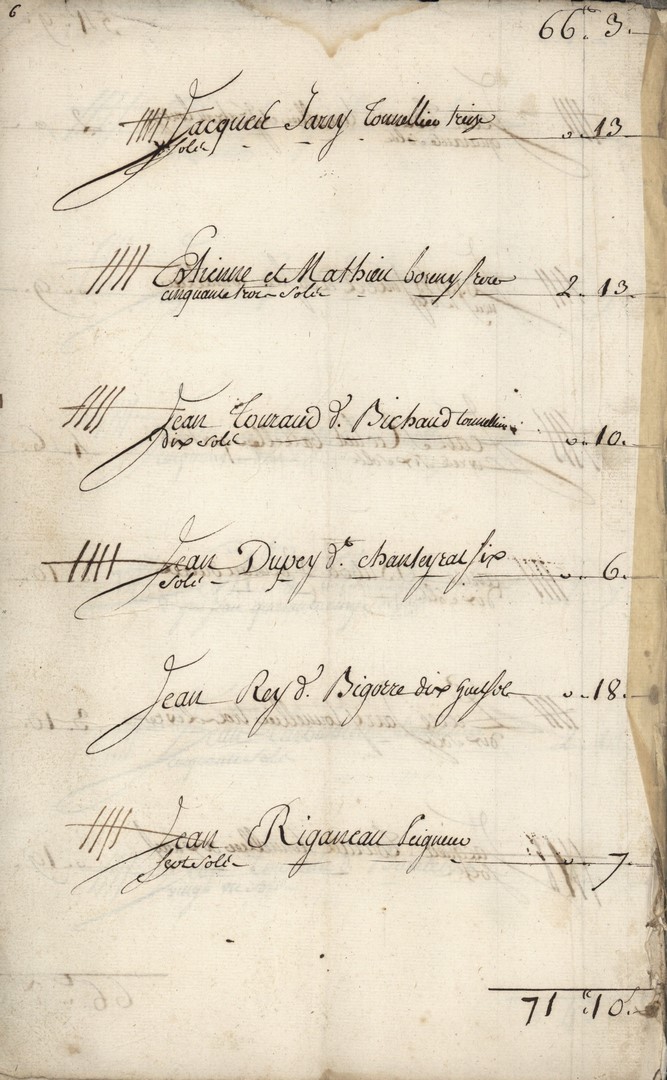 6
66 3
Jacques Jarry Tonnellier treize
solz
0 13
Estienne et Mathieu boreny freres
cinquante trois solz
2 13
Jean Touraud d. Bichaud tonnellier
dix solz
0 10
Jean Dupey d. chanteyrat six
solz
0 6
Jean Rey d. Bigorre dix huit solz
0 18
Jean Riganeau seigneur
sept solz
0 7
71 10